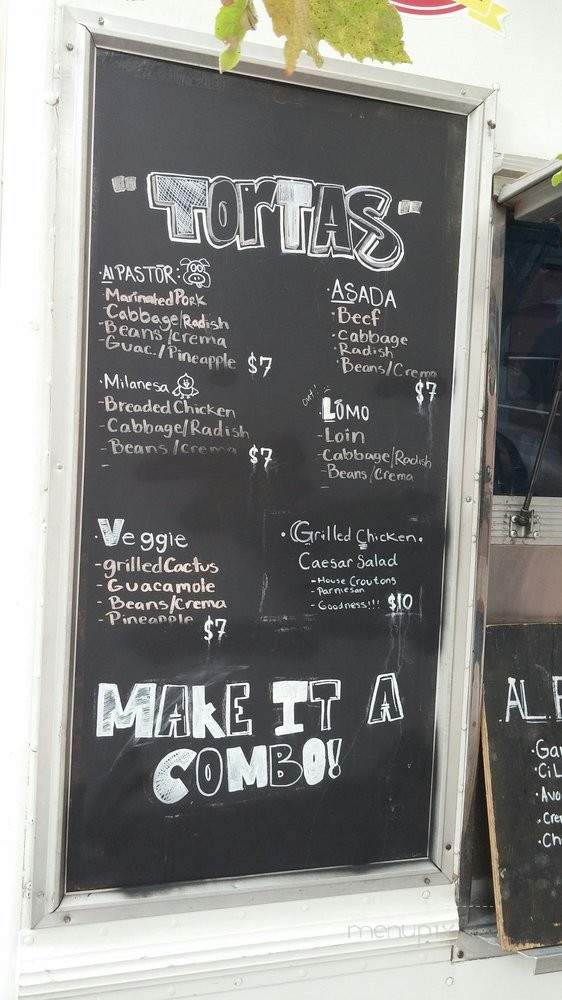 "TORTAS"
·Al PASTOR:
- Marinated Pork
- Cabbage/Radish
- Beans/crema
- Guac./Pineapple $7
· Milanesa
- Breaded Chicken
- Cabbage/Radish
- Beans/crema
- $7
· Veggie
- grilled Cactus
- Guacamole
- Beans/Crema
- Pineapple $7
·ASADA
· Beef
· Cabbage
· Radish
· Beans/Crema
$7
out!
·LOMO
- Loin
- Cabbage/Radish
- Beans/Crema
-
· Grilled Chicken.
Caesar Salad
- House Croutons
- Parmesan
- Goodness!!! $10
MAKE IT A
COMBO!
menupix